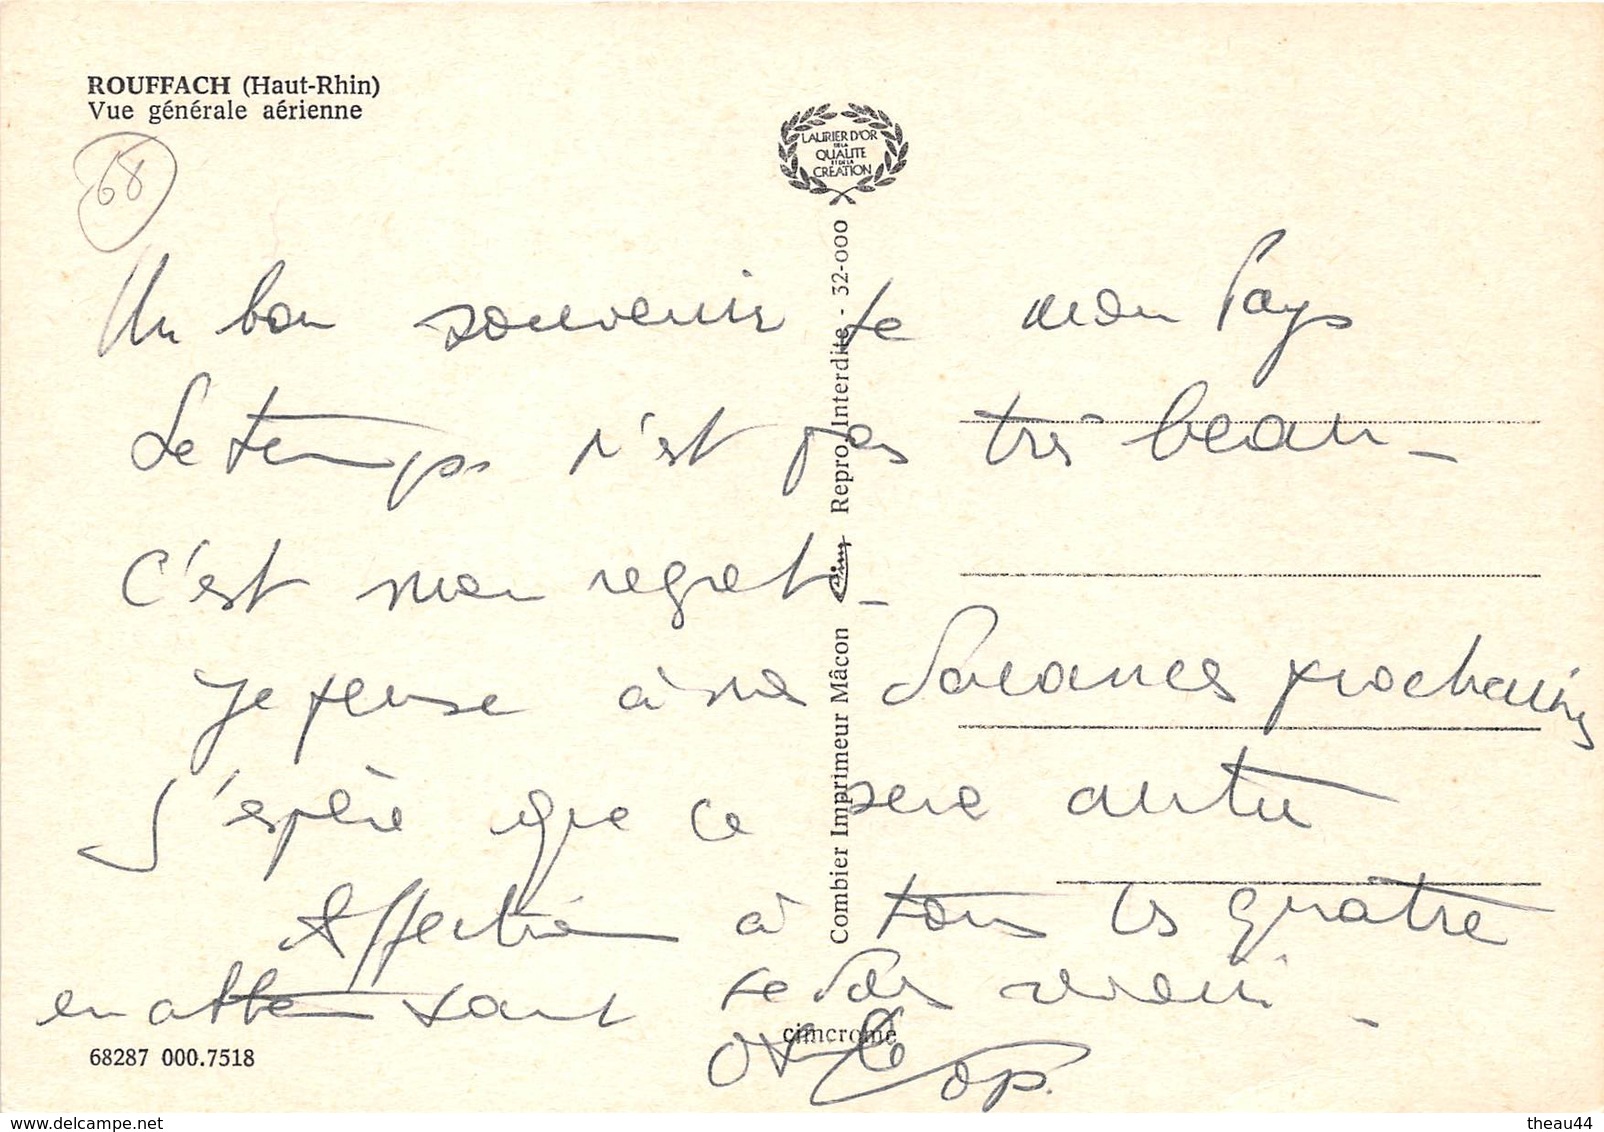 ROUFFACH (Haut-Rhin)
Vue générale aérienne
68
LAURIER D'OR
DE LA
QUALITE
ET DE LA
CRÉATION
Combier Imprimeur Mâcon Cim Repro. Interdite - 32-000
Un bon souvenir de mon Pays
Le temps n'est pas très beau -
C'est mon regret -
Je pense à vacances prochaines
J'espère que ce sera autre
Affection à tous les quatre
en attendant de vous revoir -
cimcrome
68287 000.7518
theau44